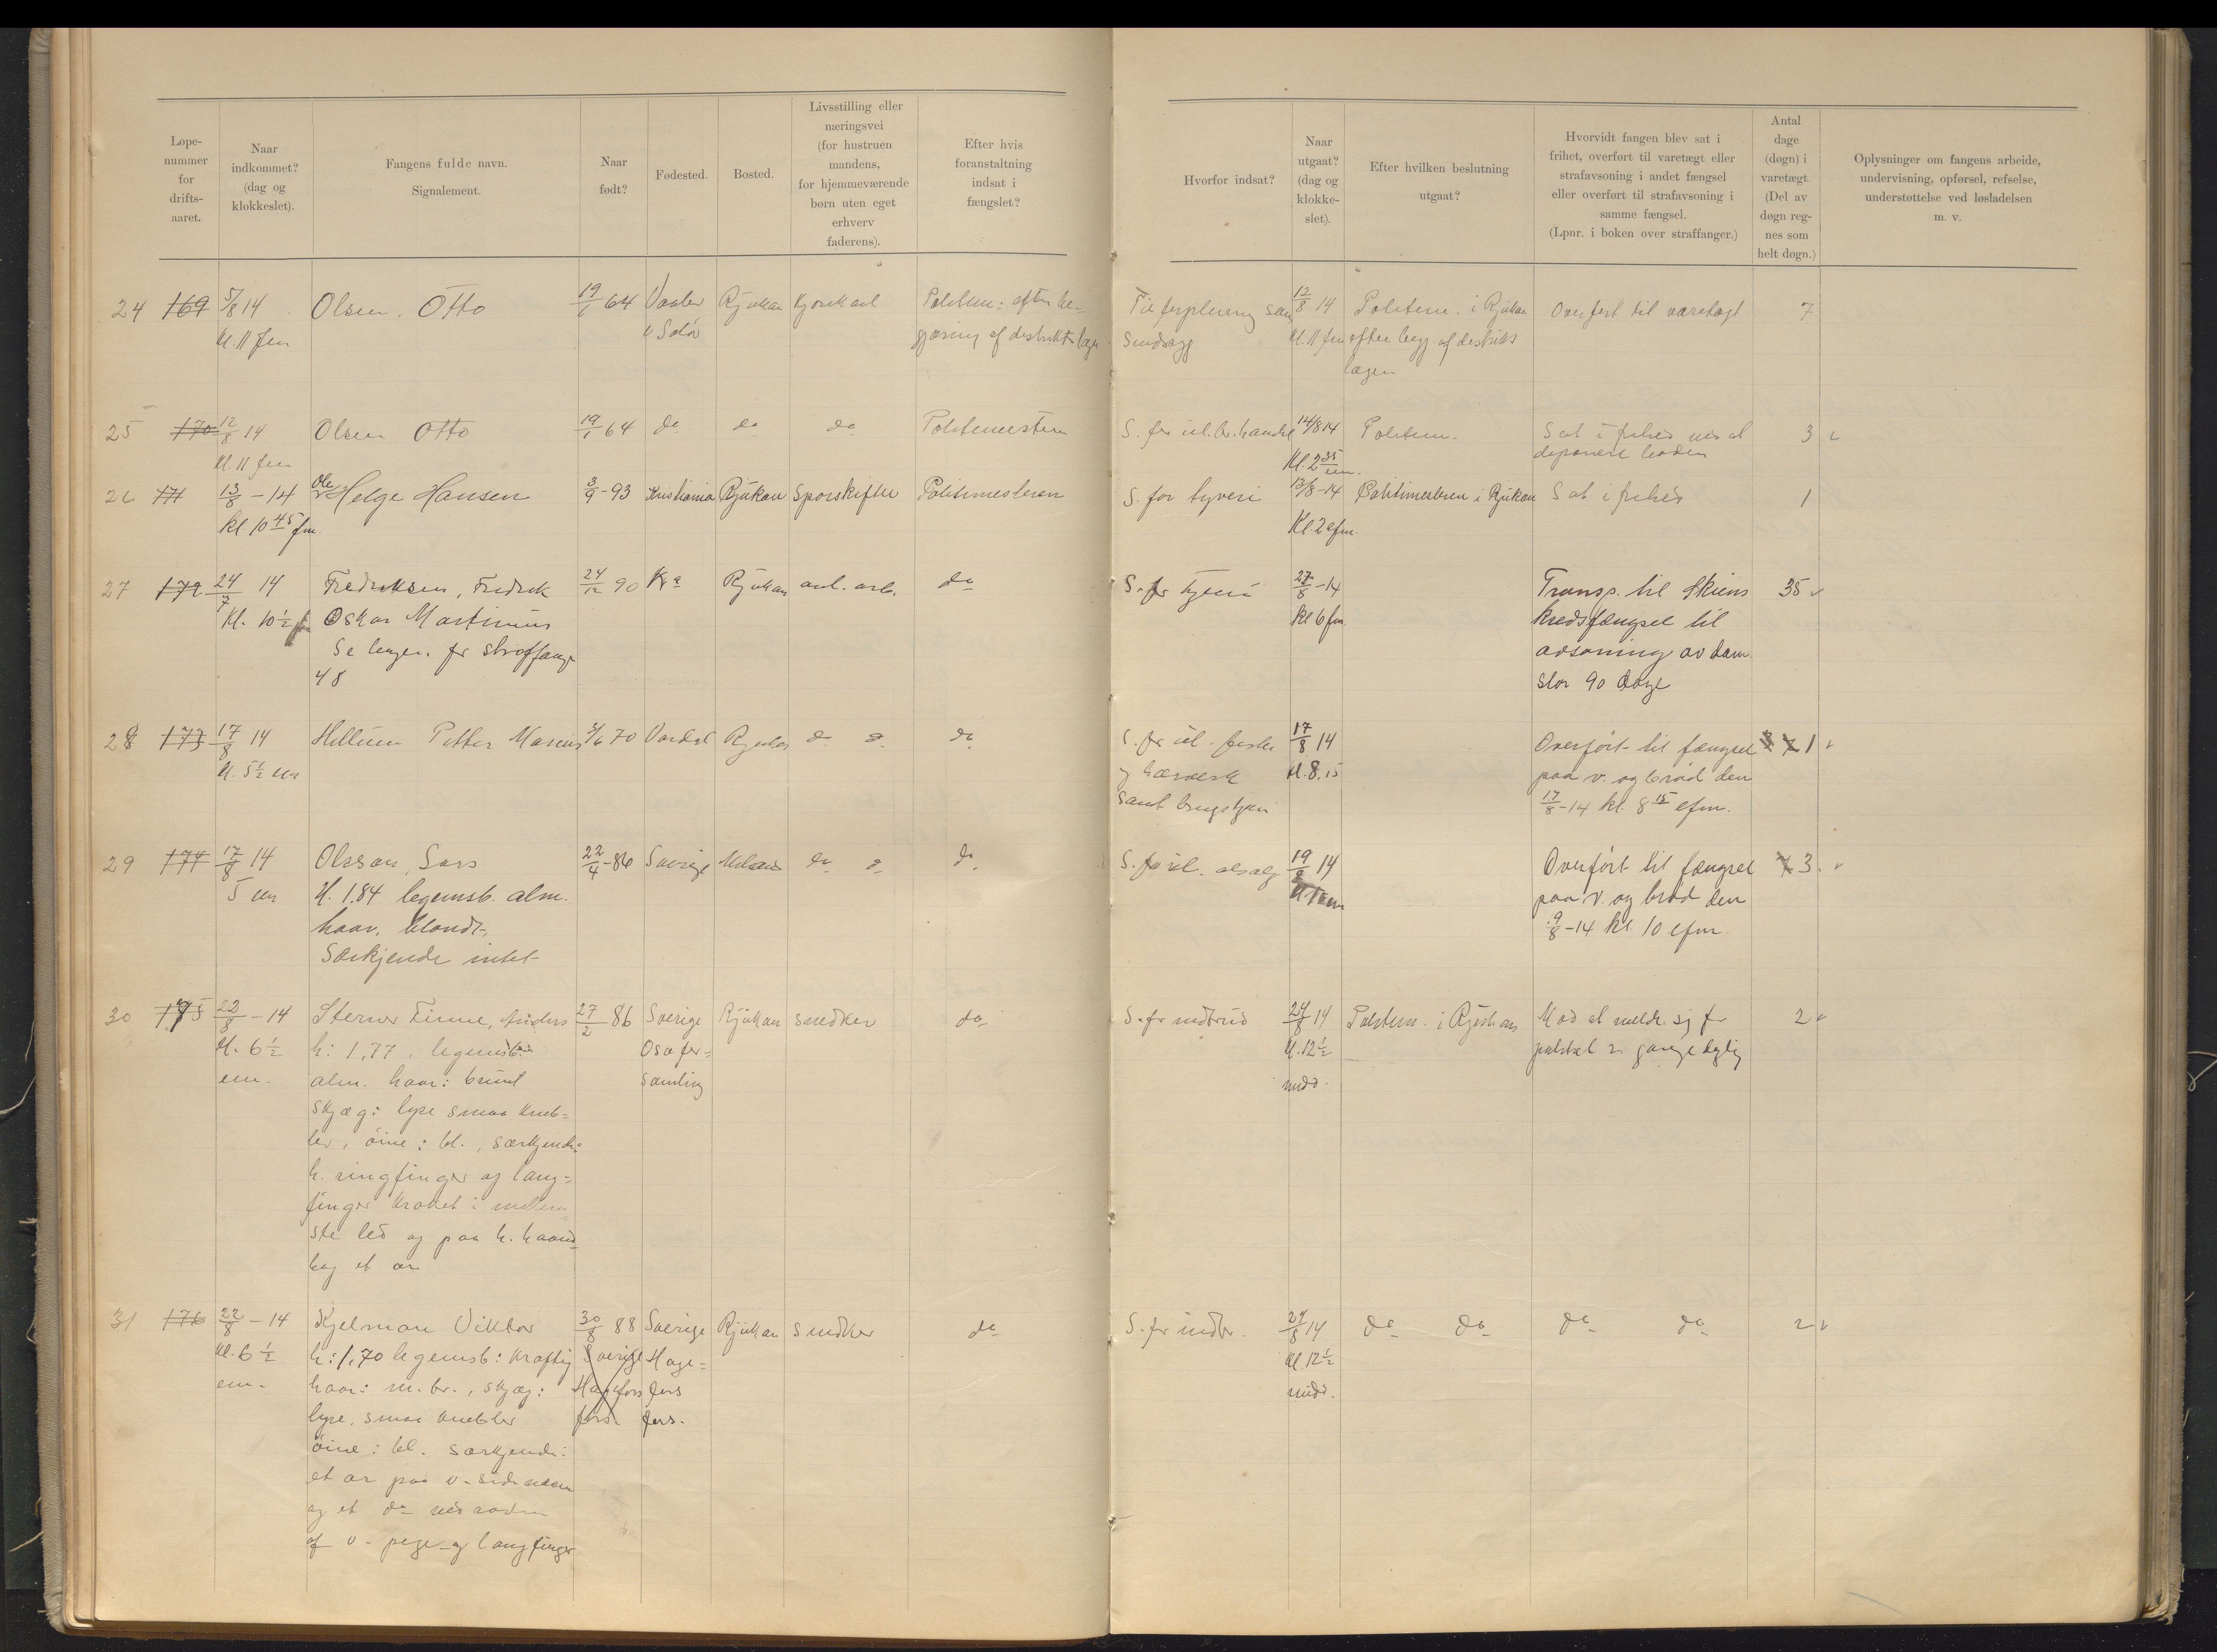 Løpe-
nummer
for
drifts-
aaret.
Naar
indkommet?
(dag og
klokkeslet).
Fangens fulde navn.
Signalement.
Naar
født?
Fødested.
Bosted.
Livsstilling eller
næringsvei
(for hustruen
mandens,
for hjemmeværende
børn uten eget
erhverv
faderens).
Efter hvis
foranstaltning
indsat i
fængslet?
Hvorfor indsat?
Naar
utgaat?
(dag og
klokke-
slet).
Efter hvilken beslutning
utgaat?
Hvorvidt fangen blev sat i
frihet, overført til varetægt eller
strafavsoning i andet fængsel
eller overført til strafavsoning i
samme fængsel.
(Lpnr. i boken over straffanger.)
Antal
dage
(døgn) i
varetægt.
(Del av
døgn reg-
nes som
helt døgn.)
Oplysninger om fangens arbeide,
undervisning, opførsel, refselse,
understøttelse ved løsladelsen
m. v.
24 169 5/8 14 Olsen. Otto 19/1 64 Vaaler Rjukan Politim: efter be-
kl. 11 fm v Solør gjæring af distriktslæge
sindsyg
12/8 14 Politim. i Rjukan Overført til varetægt 7
kl. 11 fm efter begj af distrikts
lægen
25 170 12/8 14 Olsen Otto 19/1 64 do do do Politimesteren
kl. 11 fm
S. for ul. br. handel 14/8 14 Politim. Sat i frihed
Kl. 2 35/em. deponert boden 3
26 171 13/8 - 14 Ole Helge Hansen 3/9 - 93 Kristiania Rjukan Sporskifter Politimesteren
kl. 10 45 fm
S. for tyveri 13/8 - 14 Politimesteren i Rjukan Sat i frihed 1
Kl. 2 efm.
27 172 24/7 14 Fredriksen, Fredrik 24/12 90 Kra Rjukan anl. arb. do
Kl. 10 1/2 f Oskar Martinius
Se bogen for straffange
48
S. for tyveri 27/8 - 14 Transp. til Skiens 35
kl 6 fm kredsfængsel til
avsoning av dom
stor 90 dage
28 173 17/8 14 Petter Marius 70 Rjukan do do do
kl. 5 1/2 em
S. for ul.
samt brugstyveri
17/8 14 Overført til fængsel 1
kl. 8.15 paa v. og brød den
17/8 - 14 kl. 8 15 efm.
29 174 17/8 14 Olsson, Lars 22/4 - 86 Sverige do do do
5 em H. 1.84 legemsb. alm.
haar. blondt,
Særkjende intet
S. for ul. ølsalg 19/8 14 Overført til fængsel 3
paa v. og brød den
9/8 - 14 kl. 10 efm.
30 175 22/8 - 14 Sterner Finne, Anders 27/2 86 Sverige Rjukan snedker do
Kl. 6 1/2 h: 1,77, legemsb: Osa for-
em. alm. haar: brunt samling
skjæg: lyse smaa kneb-
ler, öine: bl., særkjende:
h. ringfinger og lang-
finger kroket i
ste led og paa h. haand
bag et ar
S. for indbrud 24/8 14 Politim. i Rjukan Mod at melde sig for 2
Kl. 12 1/2 politiet 2 gange daglig
midd.
31 176 22/8 - 14 Kjelman Viktor 30/8 88 Sverige Rjukan snedker do
kl. 6 1/2 h: 1,70 legemsb: kraftig Sverige Hage-
em. haar: m. br., skjæg: Hagefors fors
lyse, smaa knebler fors fors.
öine: bl. særkjende:
et ar paa v. side
og et do ved roden
af v. pege- og langfinger
S. for indbr. 24/8 14 do do do do 2
Kl. 12 1/2
midd.